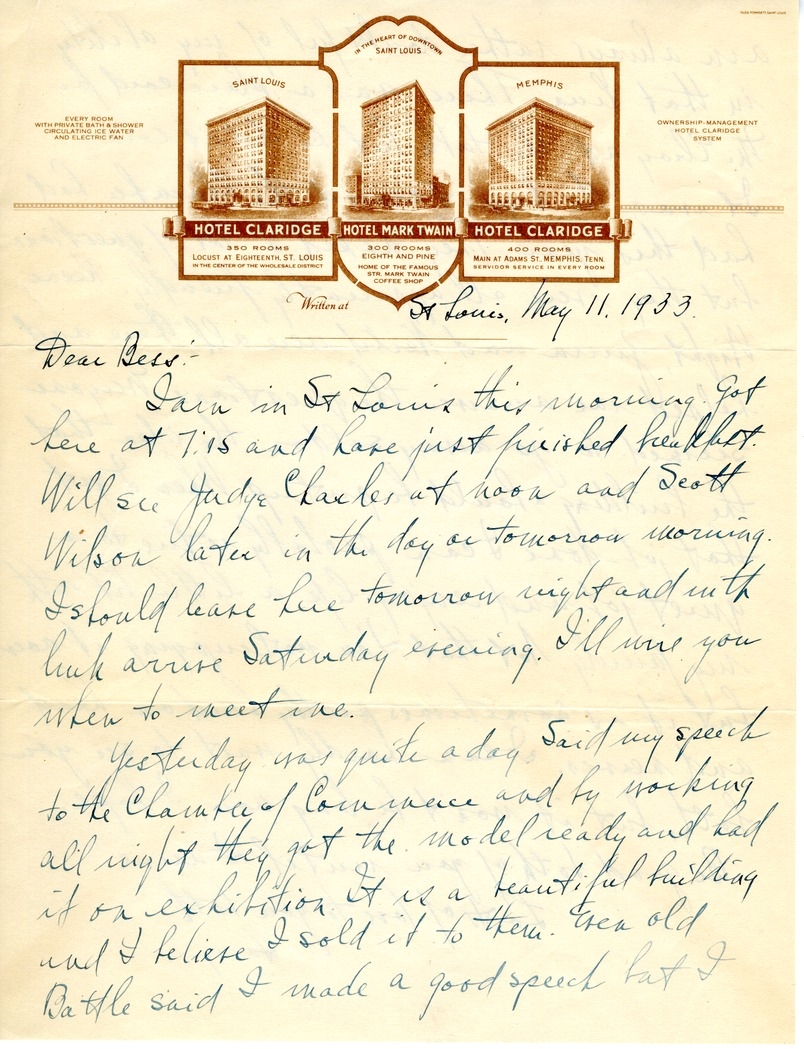 IN THE HEART OF DOWNTOWN
SAINT LOUIS
SAINT LOUIS
MEMPHIS
EVERY ROOM
WITH PRIVATE BATH & SHOWER
CIRCULATING ICE WATER
AND ELECTRIC FAN
OWNERSHIP-MANAGEMENT
HOTEL CLARIDGE
SYSTEM
HOTEL CLARIDGE
HOTEL MARK TWAIN
HOTEL CLARIDGE
350 ROOMS
LOCUST AT EIGHTEENTH, ST. LOUIS
IN THE CENTER OF THE WHOLESALE DISTRICT
300 ROOMS
EIGHTH AND PINE
HOME OF THE FAMOUS
STR. MARK TWAIN
COFFEE SHOP
400 ROOMS
MAIN AT ADAMS ST., MEMPHIS, TENN.
SERVIDOR SERVICE IN EVERY ROOM
Written at St Louis, May 11, 1933.
Dear Bess:-
I am in St Louis this morning. Got
here at 7:15 and have just finished breakfast.
Will see Judge Charles at noon and Scott
Wilson later in the day or tomorrow morning.
I should leave here tomorrow night and with
luck arrive Saturday evening. I'll wire you
when to meet me.
Yesterday was quite a day. Said my speech
to the Chamber of Commerce and by working
all night they got the model ready and had
it on exhibition. It is a beautiful building
and I believe I sold it to them. Even old
Battle said I made a good speech but I